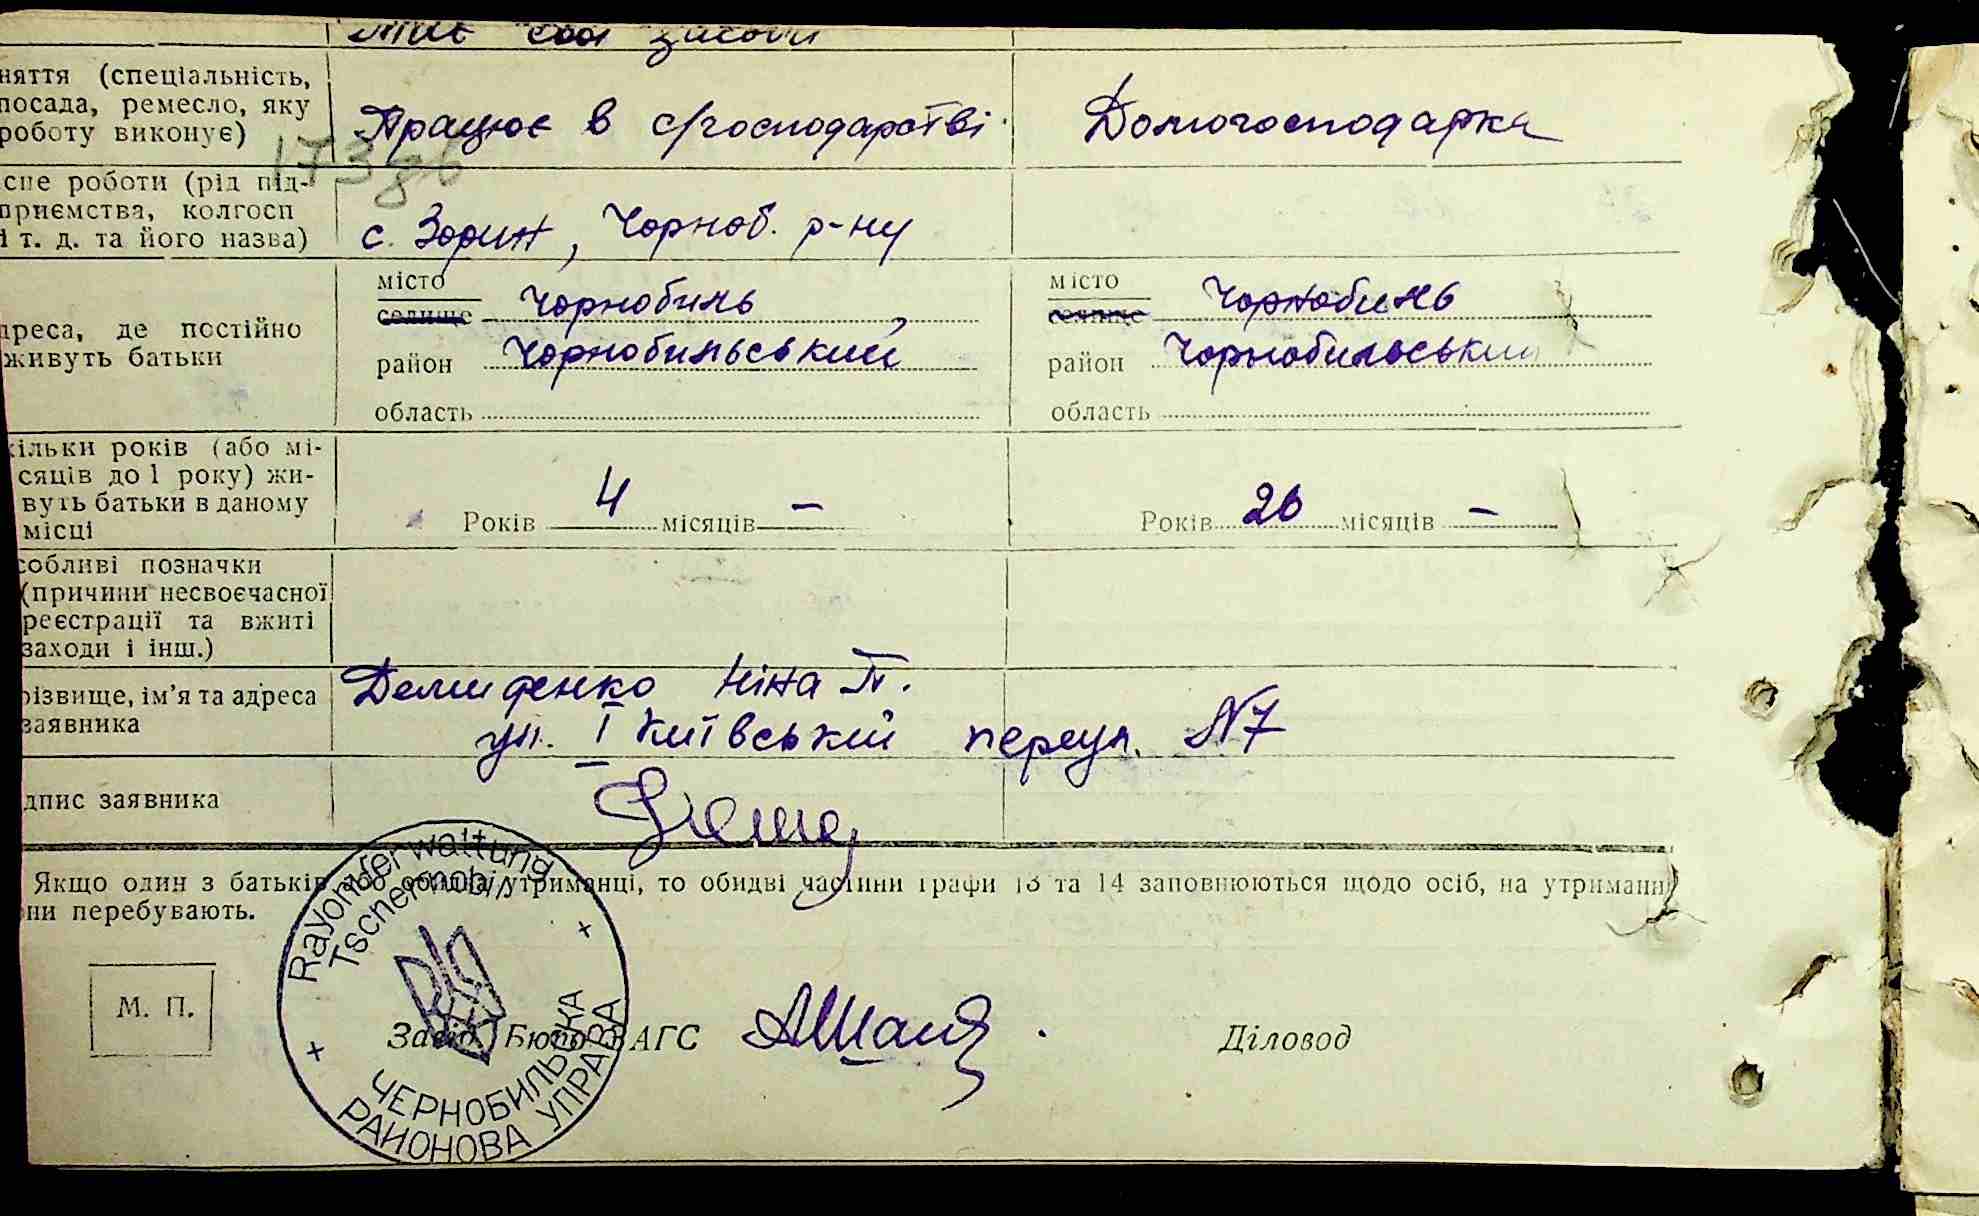 має свої засоби
няття (спеціальність, посада, ремесло, яку роботу виконує)
Працює в с/господарстві
Домогосподарка
173
сце роботи (рід під-
приємства, колгосп
і т. д. та його назва)
с. Зорин, Чорноб. р-ну
дреса, де постійно
живуть батьки
місто
селище Чорнобиль,
район Чорнобильський
область
місто
селище Чорнобиль
район Чорнобильський
область
кільки років (або мі-
сяців до 1 року) жи-
вуть батьки в даному
місці
Років 4 місяців —
Років 26 місяців —
собливі позначки
(причини несвоєчасної
реєстрації та вжиті
заходи і інш.)
різвище, ім'я та адреса
заявника
Демиденко Ніна П.
ул. I Київський переул. №7
дпис заявника
Якщо один з батьків або обидва утриманці, то обидві частини графи 13 та 14 заповнюються щодо осіб, на утриманні
ни перебувають.
Rayonverwaltung
Tschernobil
ЧЕРНОБИЛЬСЬКА
РАЙОНОВА УПРАВА
М. П.
Завід. Бюро ЗАГС
Діловод